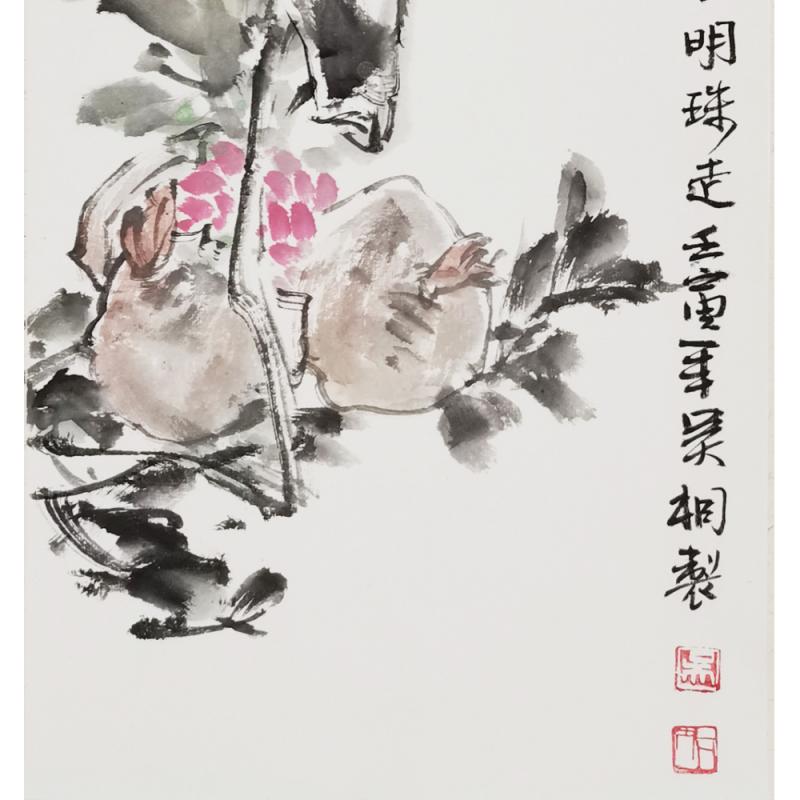 明珠走壬寅年吴桐製